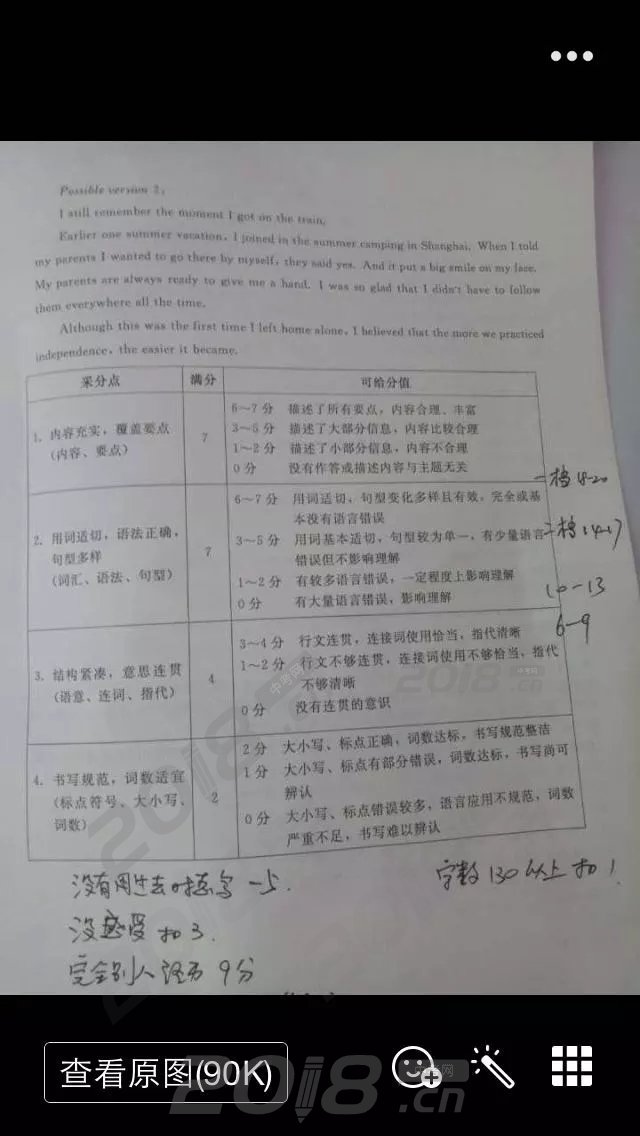 Possible version 2:
I still remember the moment I got on the train.
Earlier one summer vacation, I joined in the summer camping in Shanghai. When I told
my parents I wanted to go there by myself, they said yes. And it put a big smile on my face.
My parents are always ready to give me a hand. I was so glad that I didn't have to follow
them everywhere all the time.
Although this was the first time I left home alone, I believed that the more we practiced
independence, the easier it became.
采分点 满分 可给分值
1. 内容充实，覆盖要点
（内容、要点）
7
6～7分 描述了所有要点，内容合理、丰富
3～5分 描述了大部分信息，内容比较合理
1～2分 描述了小部分信息，内容不合理
0分 没有作答或描述内容与主题无关
2. 用词适切，语法正确，
句型多样
（词汇、语法、句型）
7
6～7分 用词适切，句型变化多样且有效，完全或基
本没有语言错误
3～5分 用词基本适切，句型较为单一，有少量语言
错误但不影响理解
1～2分 有较多语言错误，一定程度上影响理解
0分 有大量语言错误，影响理解
一档 18-20
二档 14-17
10-13
6-9
3. 结构紧凑，意思连贯
（语意、连词、指代）
4
3～4分 行文连贯，连接词使用恰当，指代清晰
1～2分 行文不够连贯，连接词使用不够恰当，指代
不够清晰
0分 没有连贯的意识
4. 书写规范，词数适宜
（标点符号、大小写、
词数）
2
2分 大小写、标点正确，词数达标，书写规范整洁
1分 大小写、标点有部分错误，词数达标，书写尚可
辨认
0分 大小写、标点错误较多，语言应用不规范，词数
严重不足，书写难以辨认
没有用过去时态写 -5.
字数 130以上扣1
没感受 扣3.
完全别人经历 9分
查看原图(90K)
2018.cn
中考网